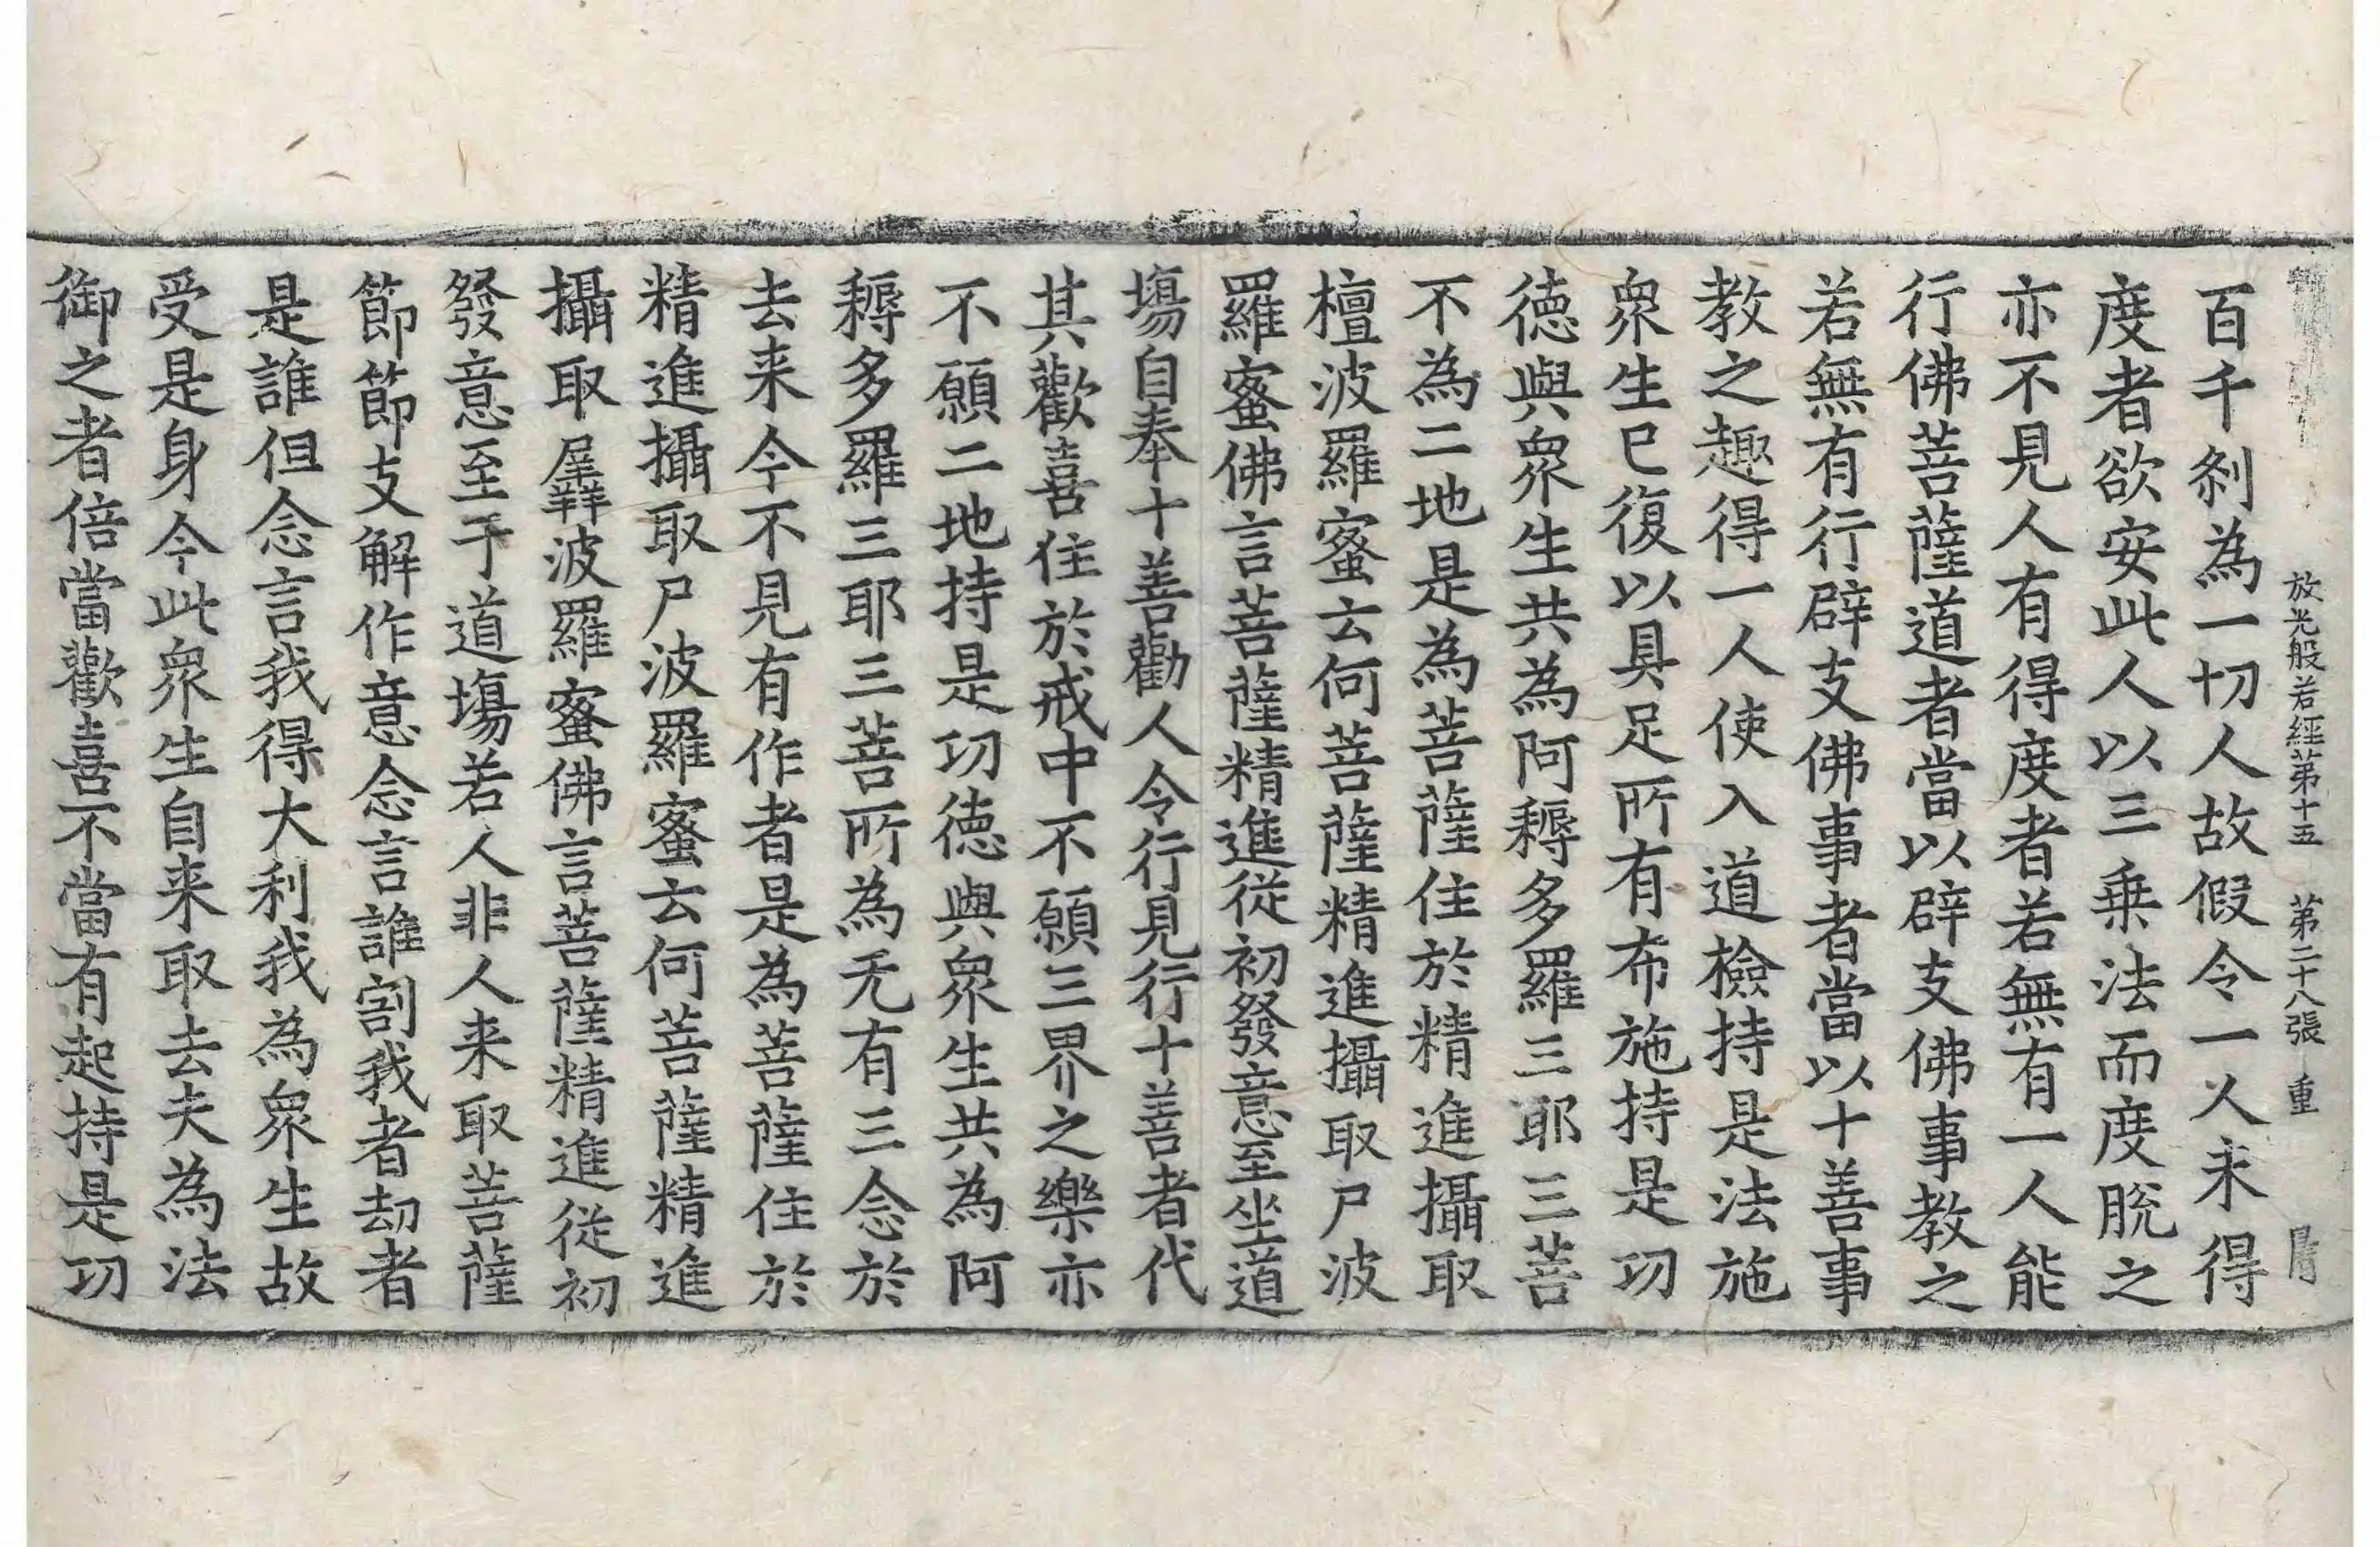 放光般若經第十五 第二十八張 重
百千刹為一切人故假令一人未得
度者欲安此人以三乗法而度脫之
亦不見人有得度者若無有一人能
行佛菩薩道者當以辟支佛事教之
若無有行辟支佛事者當以十善事
教之趣得一人使入道檢持是法施
衆生已復以具足所有布施持是功
徳與衆生共為阿耨多羅三耶三菩
不為二地是為菩薩住於精進攝取
檀波羅蜜云何菩薩精進攝取尸波
羅蜜佛言菩薩精進從初發意至坐道
場自奉十善勸人令行見行十善者代
其歡喜住於戒中不願三界之樂亦
不願二地持是功徳與衆生共為阿
耨多羅三耶三菩所為无有三念於
去来今不見有作者是為菩薩住於
精進攝取尸波羅蜜云何菩薩精進
攝取羼波羅蜜佛言菩薩精進從初
發意至于道場若人非人来取菩薩
節節支解作意念言誰割我者劫者
是誰但念言我得大利我為衆生故
受是身今此衆生自来取去夫為法
御之者倍當歡喜不當有起持是功